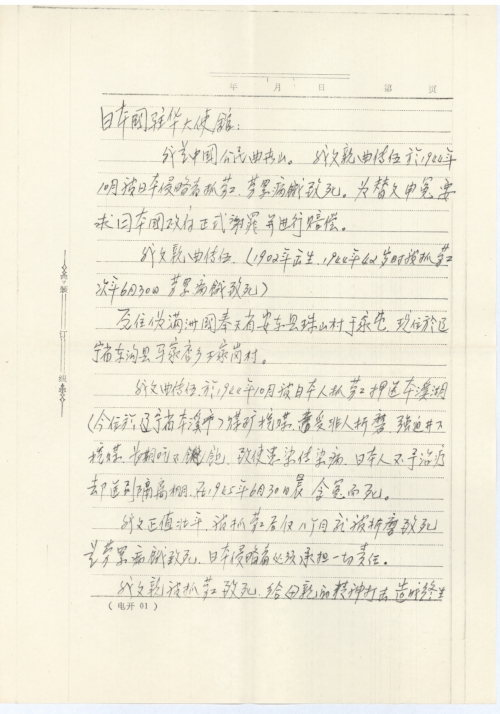 年 月 日 第 页
日本國驻华大使館：
我是中國公民曲 山。我父親曲傳伍於1944年
10月被日本侵略者抓劳工，劳累病餓致死。为替父申冤要
求日本國政府正式謝罪并進行赔偿。
我父親曲傳伍，（1902年出生，1944年42岁时被抓劳工
次年6月30日劳累病餓致死）
原住伪满洲國奉天省安东县珠山村于家屯，现住於辽
宁省东沟县马家店乡于家岗村。
我父曲傳伍，於1944年10月被日本人抓劳工押送本溪湖
（今住於辽宁省本溪市）煤矿挖煤，遭受非人折磨，强迫井下
挖煤，长期吃不飽，致使患染传染病，日本人不予治疗
却送到隔离棚，在1945年6月30日晨含冤而死。
我父正值壮年，被抓劳工后仅八个月就被折磨致死
是劳累病餓致死，日本侵略者必须承担一切责任。
我父親被抓劳工致死，给母親的精神打击造成终生
（电开 01）
装订线